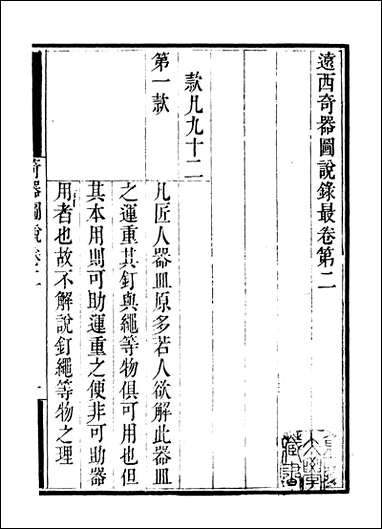 遠西奇器圖說錄最卷第二
款凡九十二
第一款
凡匠人器皿原多若人欲解此器皿
之運重其釘與繩等物俱可用也但
其本用則可助運重之便非可助器
用者也故不解說釘繩等物之理
奇器圖說卷二
一